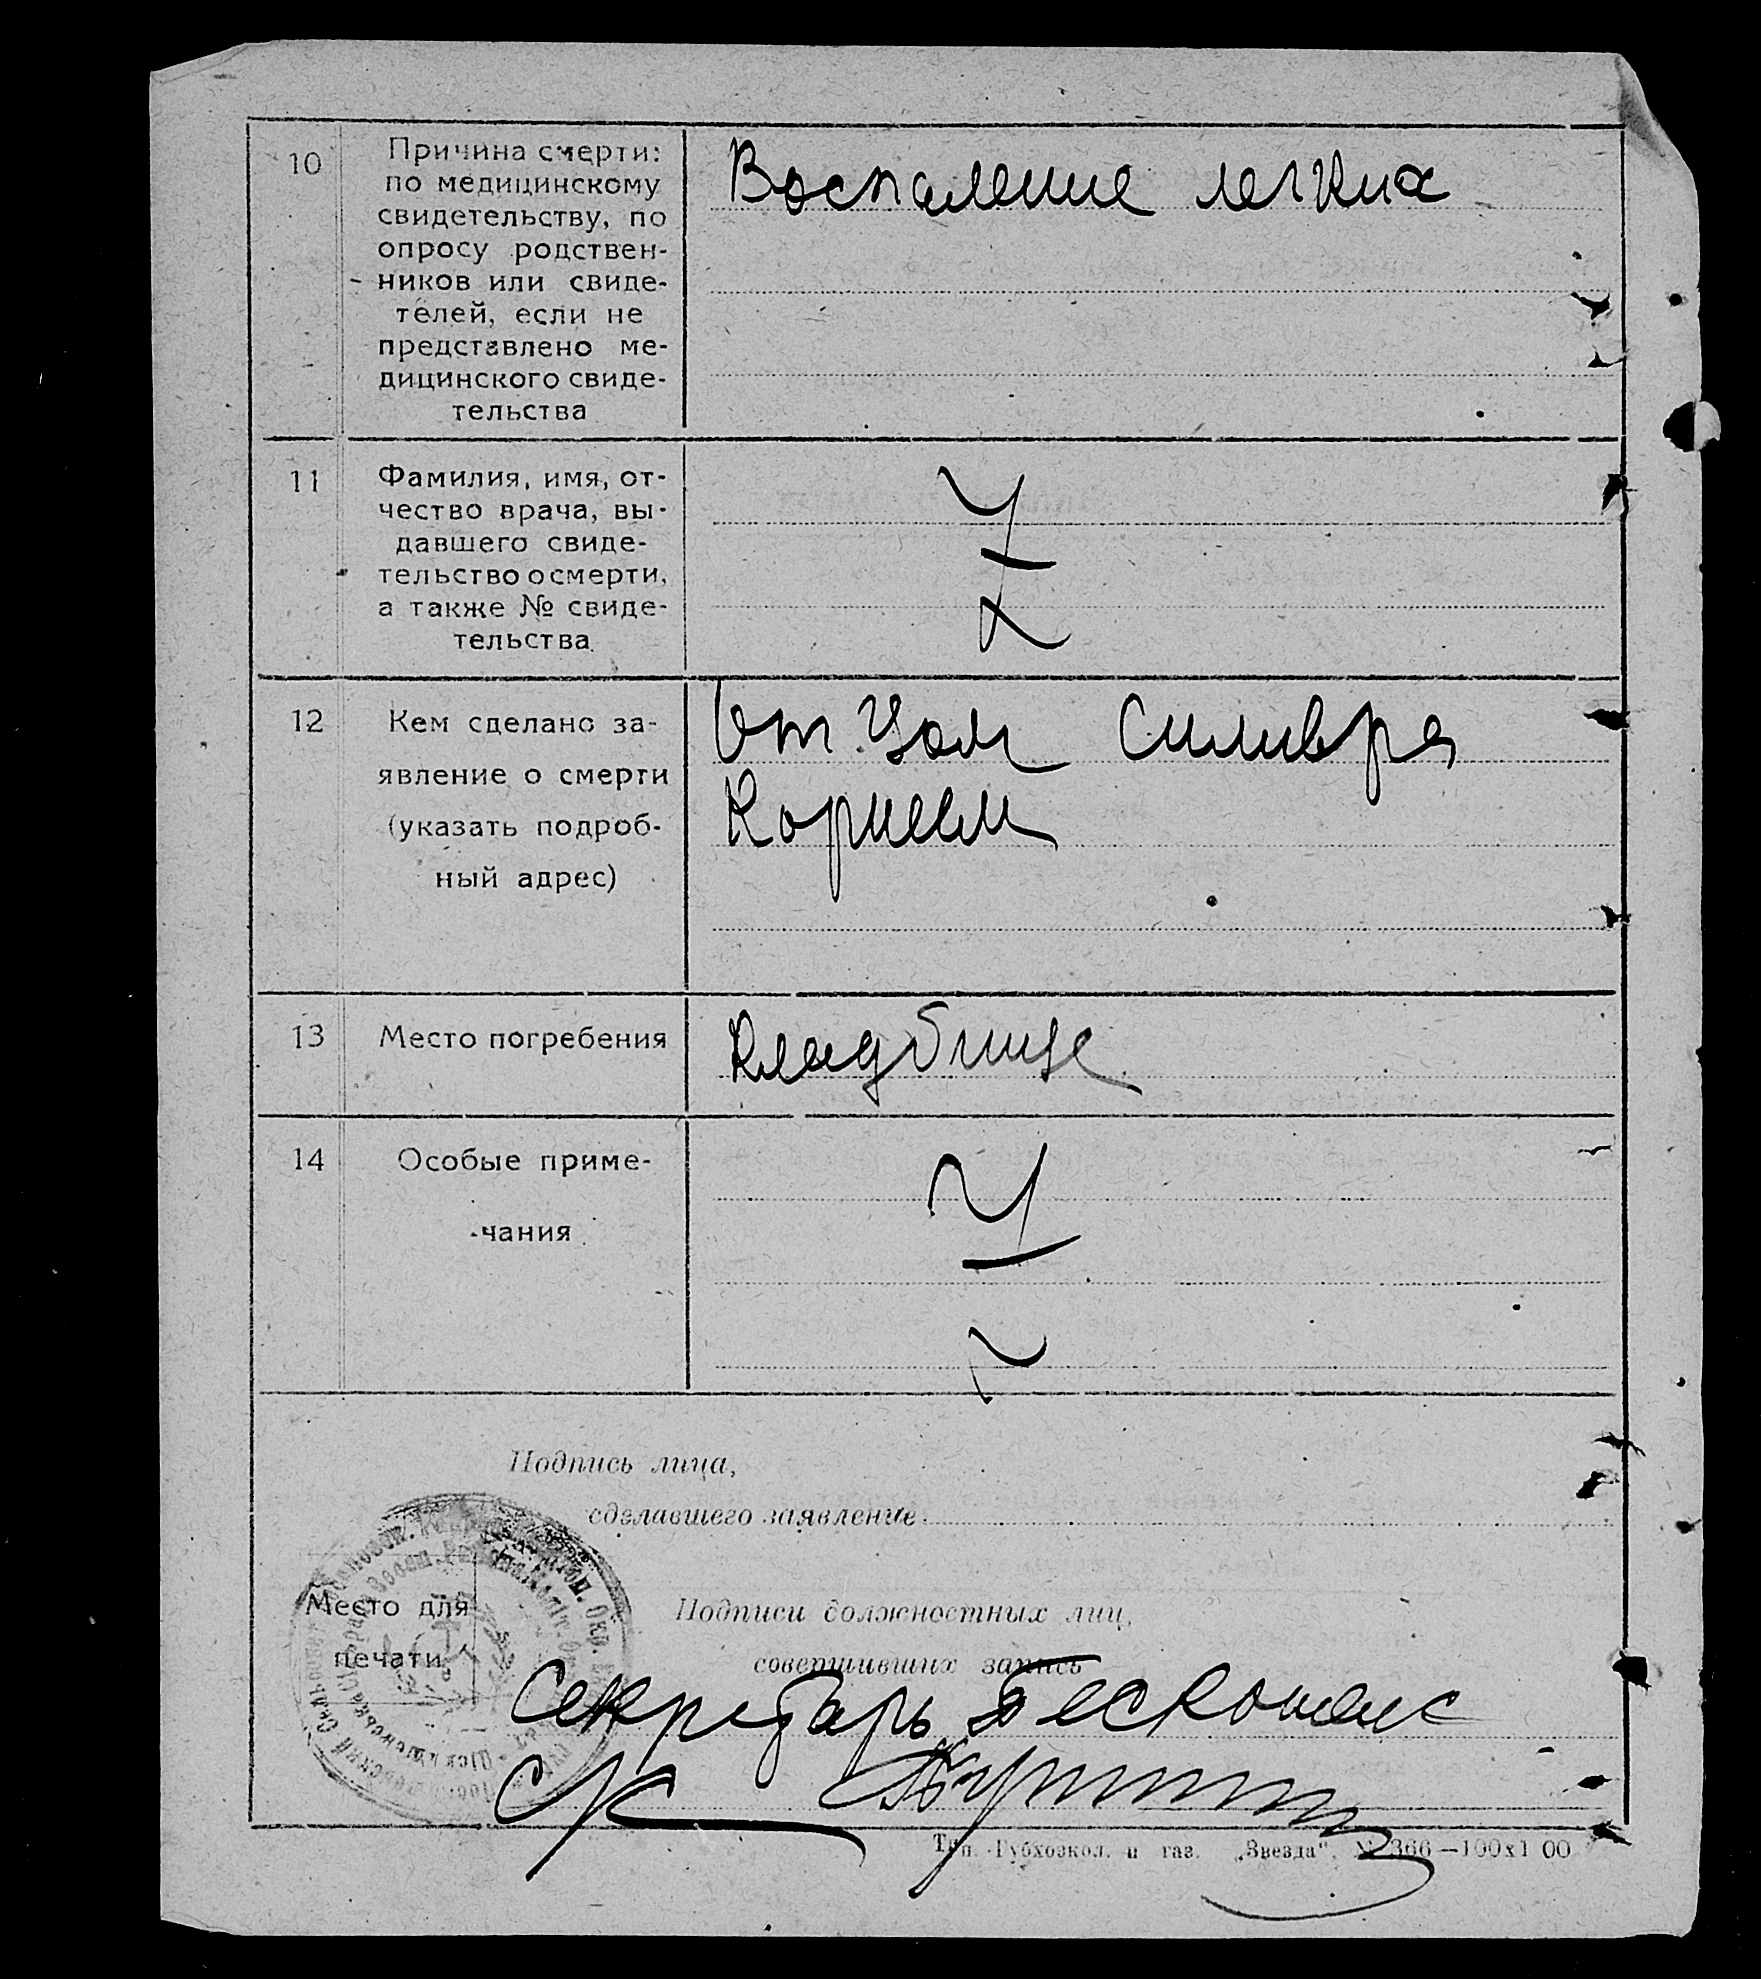 10
Причина смерти:
по медицинскому
свидетельству, по
опросу родствен-
ников или свиде-
телей, если не
представлено ме-
дицинского свиде-
тельства
Воспаление легких
11
Фамилия, имя, от-
чество врача, вы-
давшего свиде-
тельство о смерти,
а также № свиде-
тельства
12
Кем сделано за-
явление о смерти
(указать подроб-
ный адрес)
Отцом
13
Место погребения
Кладбище
14
Особые приме-
чания
Подпись лица,
сделавшего заявление
Место для
печати
Подписи должностных лиц,
совершивших запись
Секретарь
Тип. Губхозкол. и газ. „Звезда“. № 366—100х1 00